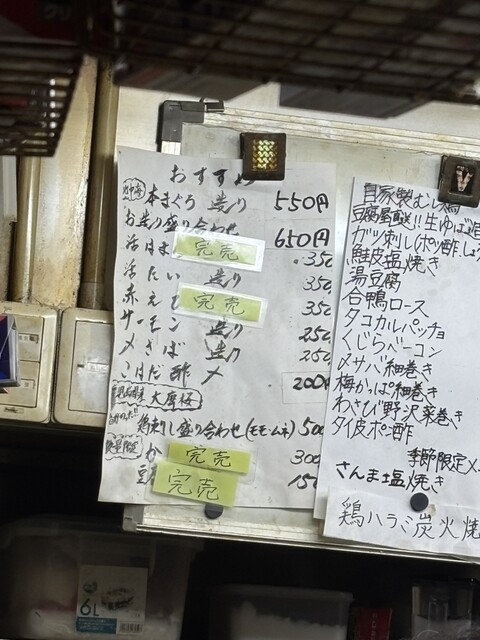 おすすめ
本まぐろ 造り 550円
お造り盛り合わせ 650円
活はま 完売 350
活たい 造り 350
赤え 完売 350
サーモン 造り 250
〆さば 造り 250
こはだ酢〆 200円
大摩桜
鶏刺し盛り合わせ(モモ・ムネ) 500
数量限定
か 完売 300
完売 150
自家製むし鶏
豆腐屋直送!!生ゆば
ガツ刺し(ポン酢.しょ
鮭皮塩焼き
湯豆腐
合鴨ロース
タコカルパッチョ
くじらベーコン
〆サバ細巻き
梅かっぱ細巻き
わさび野沢菜巻き
タイ皮ポン酢
季節限定メ
さんま塩焼き
鶏ハラミ炭火焼
6L